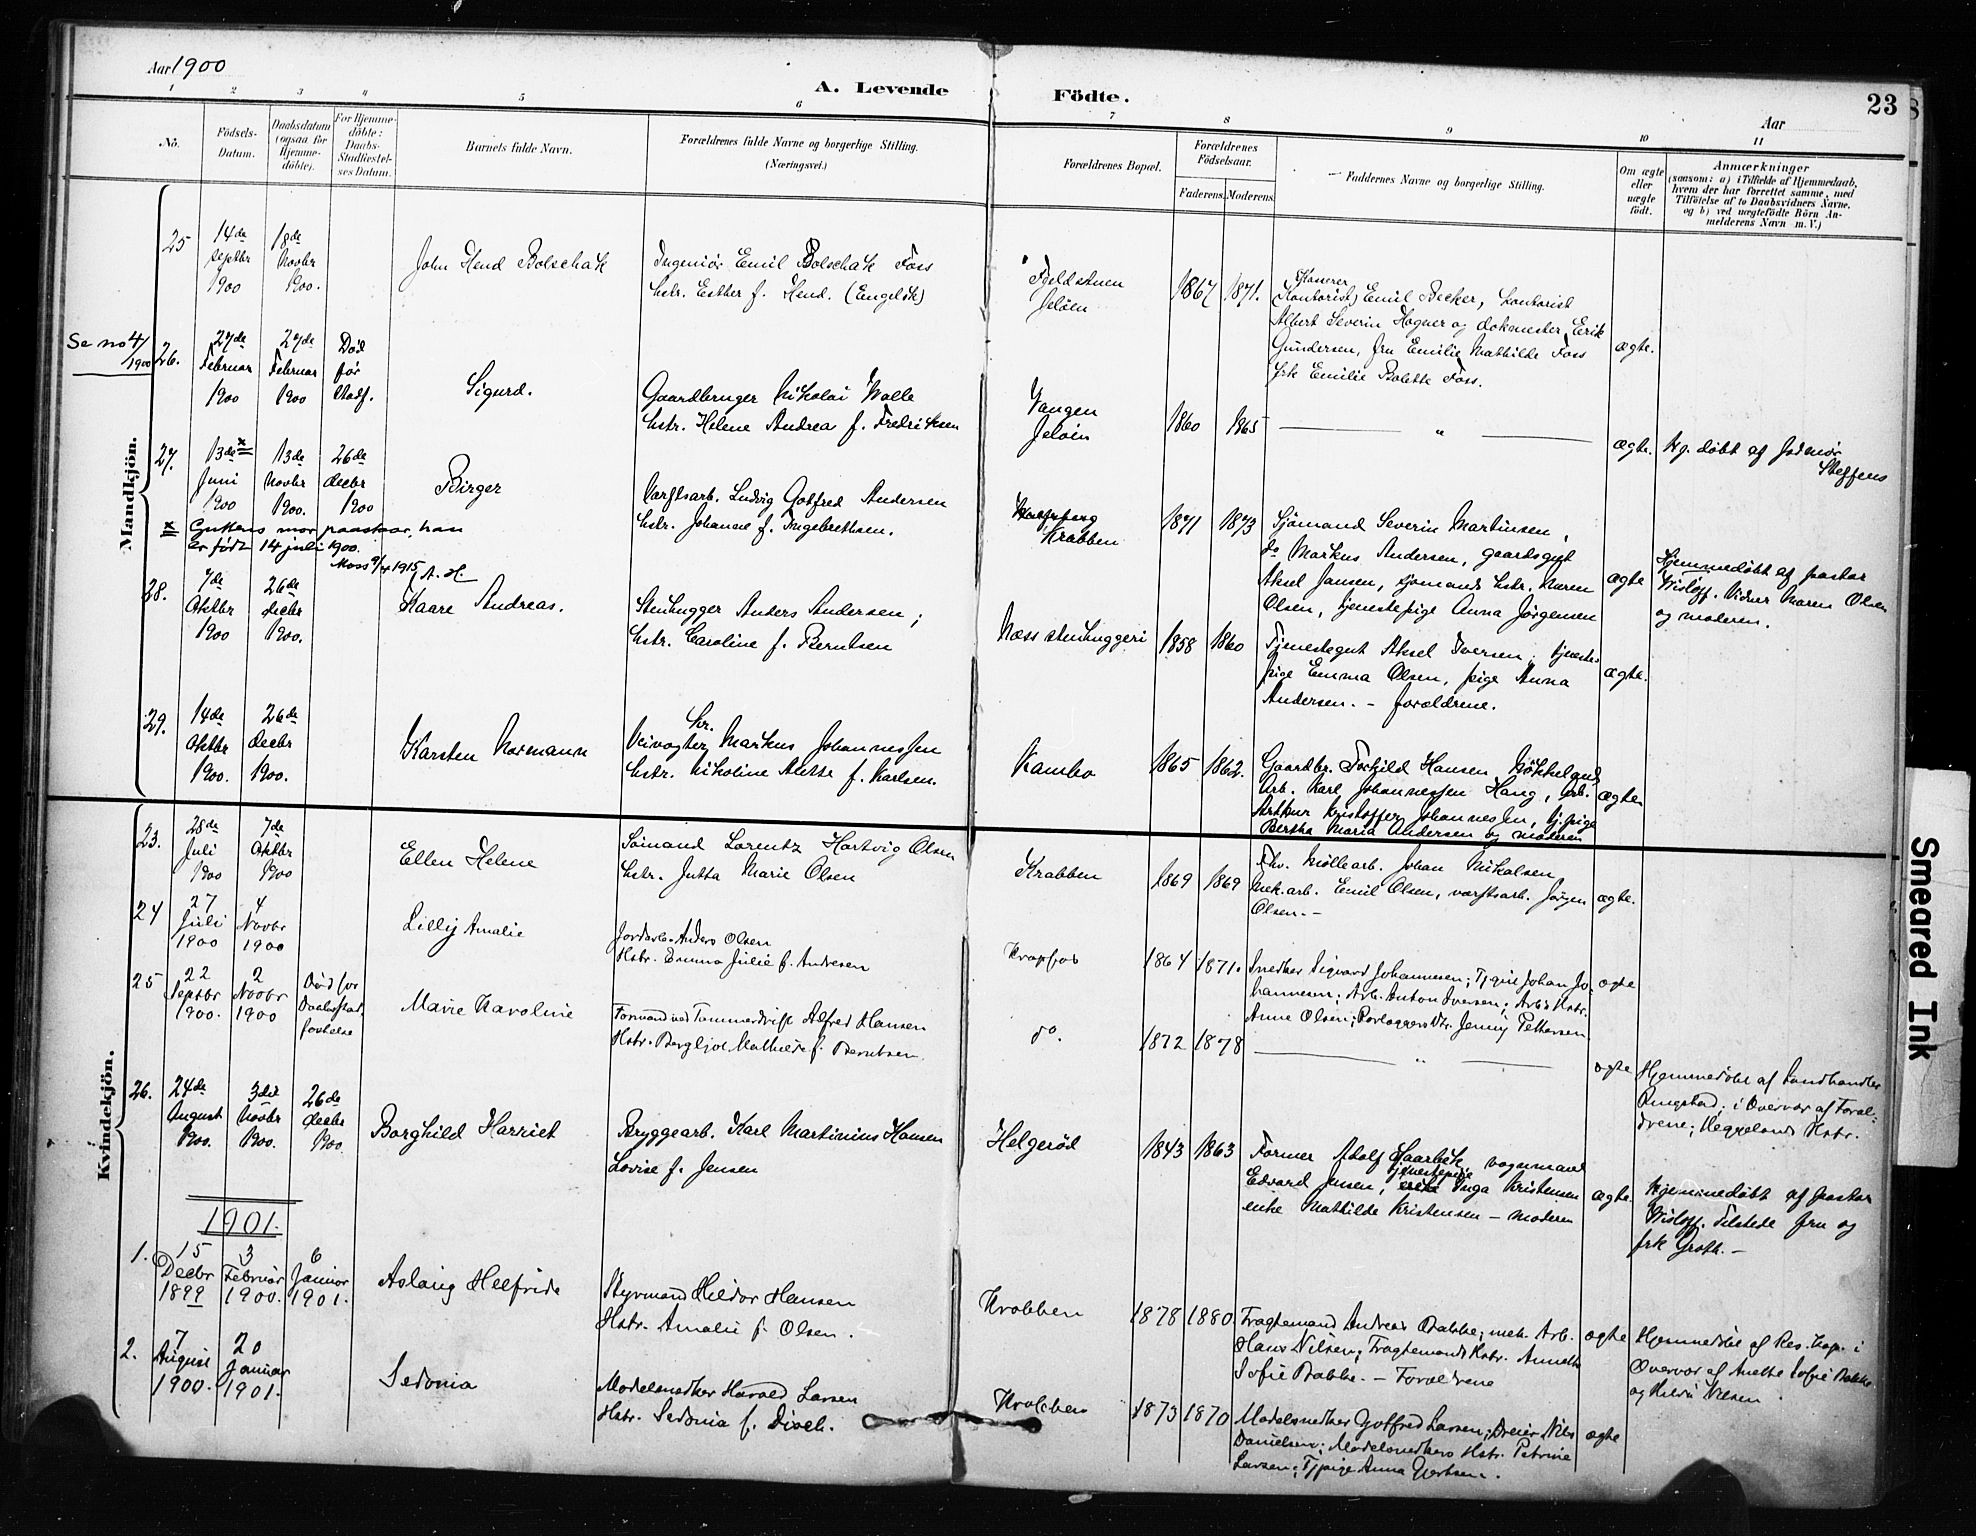 Aar 1900
A. Levende Födte.
23
Aar
1 2 3 4 5 6 7 8 9 10 11
No.
Födsels-
Datum.
Daabsdatum
(ogsaa for
Hjemme-
döbte).
For Hjemme-
döbte:
Daabs-
Stadfæstel-
ses Datum.
Barnets fulde Navn.
Forældrenes fulde Navne og borgerlige Stilling.
(Næringsvei.)
Forældrenes Bopæl.
Forældrenes
Födselsaar.
Faderens. Moderens.
Faddernes Navne og borgerlige Stilling.
Om ægte
eller
uægte
födt.
Anmærkninger
(saasom: a) i Tilfælde af Hjemmedaab,
hvem der har forrettet samme, med
Tilföielse af to Daabsvidners Navne,
og b) ved uægtefödte Börn An-
melderens Navn m. V.)
Mandkjön.
25
14de
Septbr
1900
18de
Novbr
1900.
John Hend Bolschak
Ingeniör Emil Bolschak Foss
hstr. Esther f. Hend. (Engelsk)
Fjeldstuen
Jelöen
1867
1871.
Kasserer
(Kontorist) Emil Becker, Kontorist
Albert Severin Hogner og dokmester Erik
Gundersen, fru Emilie Mathilde Foss
frk Emilie Bolette Foss.
ægte.
Se no 4/1900
26.
27de
Februar
1900
27de
Februar
1900
Död
för
Stadf.
Sigurd.
Gaardbruger Nikolai Walle
hstr. Helene Andrea f. Fredriksen
Vangen
Jelöen
1860
1865
"
ægte.
Ng. döbt af jodmor
Steffens
27.
13de x
Juni
1900
13de
Novbr
1900.
26de
decbr
1900
Birger
Varftsarb. Ludvig Gotfred Andersen
hstr. Johanne f. Ingebrethsen.
Krabben
1871
1873
Sjömand Severin Martinsen,
do Markus Andersen, gaardsgut
Aksel Jansen, sjömands hstr. Maren
Olsen, tjenestepige Anna Jörgensen
ægte
Hjemmedöbt af pastor
Wisloff. Vidner Maren Olsen
og moderen.
x Guttens mor paastaar, han
er födt 14 juli 1900.
Moss 9/4 1915, A. H.
28.
7de
Oktbr
1900
26de
decbr
1900.
Kaare Andreas.
Stenhugger Anders Andersen;
hstr. Caroline f. Berntsen
Næss stenhuggeri
1858
1860
Tjenestegut Aksel Iversen, tjeneste-
pige Emma Olsen, pige Anna
Andersen. - forældrene.
ægte.
29.
14de
Oktbr
1900.
26de
decbr
1900.
Karsten Normann
Kr.
Veivogter Markus Johannessen
hstr. Nikoline Alette f. Karlsen.
Kambo
1865
1862.
Gaardbr. Torkild Hansen Nökkelgrd
Arb. Karl Johannessen Haug, arb.
Arthur Kristoffer Johannessen, tj.pige
Bertha Maria Andersen og moderen
ægte
Kvindekjön.
23.
28de
Juli
1900
7de
Oktbr
1900
Ellen Helene
Sömand Lorentz Hartvig Olsen
hstr. Jutta Marie Olsen
Krabben
1869
1869
Fhv. Möllearb. Johan Nikolsen
mek.arb. Emil Olsen, varftsarb. Jörgen
Olsen. -
ægte.
24
27
Juli
1900
4
Novbr
1900
Lilly Amalie
Jordarb. Anders Olsen
Hstr. Emma Julie f. Andresen
Krapfos
1864
1871.
Snedker Sigvard Johannesen; Tj.gut Johan Jo-
hannesen; Arb. Anton Iversen; Arb's Hstr.
Anne Olsen; Dtr. Jenny Pettersen
ægte
25
22
Septbr
1900.
2
Novbr
1900
Död för
Daabsstad-
fæstelse
Marie Karoline
Formand ved Tommerdrift Alfred Hansen
Hstr. Bergljot Mathilde f. Berntsen
do.
1872
1878
"
ægte
Hjemmedöbt af Landhandler
Ringstad; i Overvær af Foræl-
drene; Hstr.
26.
24de
August
1900.
3die
Novbr
1900.
26de
decbr
1900
Borghild Harriet
Bryggearb. Karl Martinius Hansen
Lovise f. Jensen
Helgeröd
1843
1863
Former Adolf Haarbek, vognmand
Edvard Jensen, tjenestepige Inga Kristensen
enke Mathilde Kristensen - moderen
ægte.
Hjemmedöbt af pastor
Wisloff. Tilstede fru og
frk Groth. -
1901.
1.
15
Decbr
1899
3
Februar
1900.
6
Januar
1901.
Aslaug Helfride
Styrmand Hildor Hansen
Hstr. Amalie f. Olsen.
Krabben
1878
1880
Fragtemand Andreas Bakke; mek. Arb.
Hans Nilsen; Fragtemands Hstr. Annette
Sofie Bakke. - Forældrene
ægte
Hjemmedöbt af Res. kap. i
Overvær af Anette Sofie Bakke
og Nilsen
2.
7
August
1900.
20
Januar
1901.
Sedonia
Modelsnedker Harald Larsen
Hstr. Sedonia f. Disch.
Krabben
1873
1870
Modelsnedker Gotfred Larsen; Dreier Nils
Danielsen; Modelsnedkers Hstr. Petrine
Larsen; Tj.pige Anna Gjertsen.
ægte
Smeared Ink